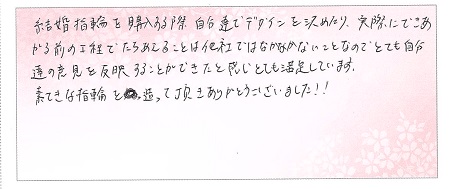 結婚指輪を購入する際自分達でデザインを決めたり、実際にできあ
がる前の工程でたちあえることは他社ではなかなかないことなのでとても自分
達の意見を反映することができたと感じとても満足しています。
素てきな指輪を造って頂きありがとうございました!!